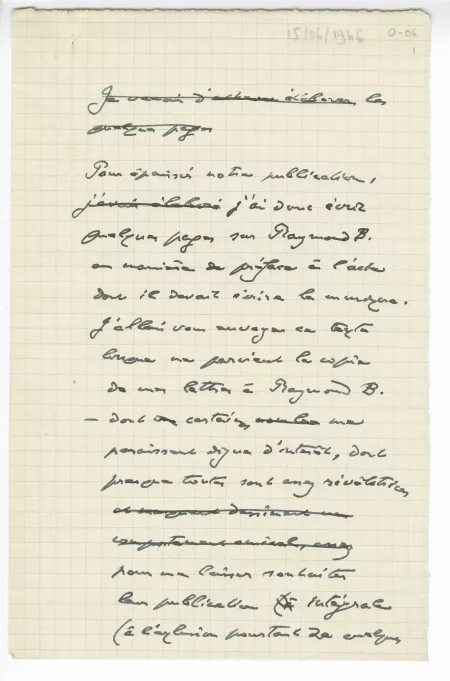 15/06/1946 0-06
1
Je venais d'achever élaborer les
quelques pages
Pour épaissir notre publication,
j'avais élaboré j'ai donc écrit
quelques pages sur Raymond B.
en manière de préface à l'acte
dont il devait écrire la musique.
J'allais vous envoyer ce texte
lorsque me parvient la copie
de mes lettres à Raymond B.
— dont certaines, me
paraissent dignes d'intérêt, dont
presque toutes sont assez révélatrices
et dessinent un
comportement amical, assez
pour me laisser souhaiter
leur publication intégrale
(à l'exclusion pourtant de quelques